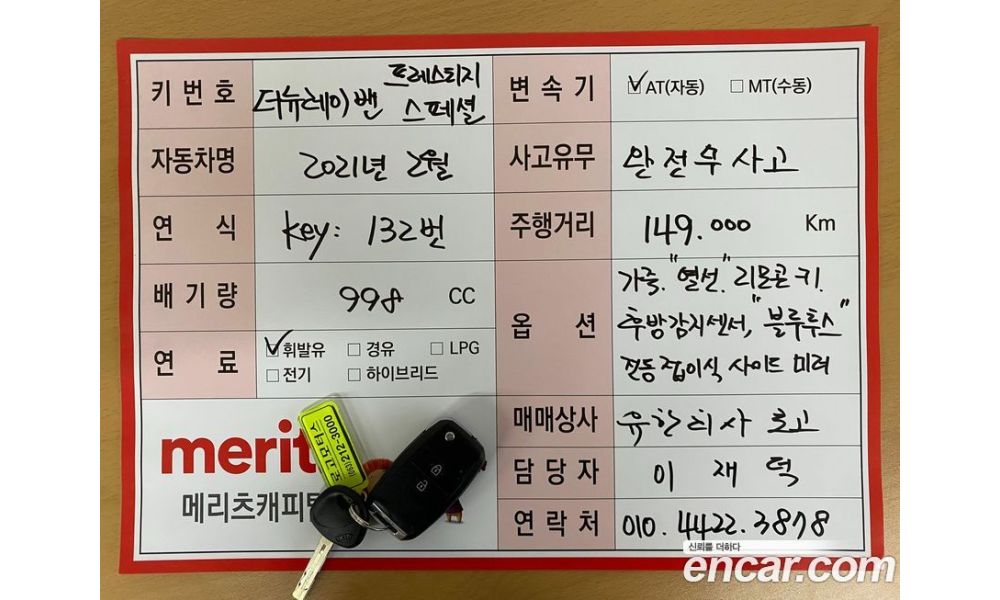 키번호 더뉴레이밴 프레스티지 스페셜
변속기 ☑AT(자동) ☐MT(수동)
자동차명 2021년 2월
사고유무 완전무사고
연식 key: 132번
주행거리 149.000 Km
배기량 998 CC
옵션 가죽. "열선". 리모콘키.
후방감지센서, "블루투스"
전동접이식 사이드 미러
연료 ☑휘발유 ☐경유 ☐LPG
☐전기 ☐하이브리드
매매상사 유한회사 로고
담당자 이재덕
연락처 010.4422.3878
merit
메리츠캐피탈
로고모터스
212-3000
신뢰를 더하다
encar.com